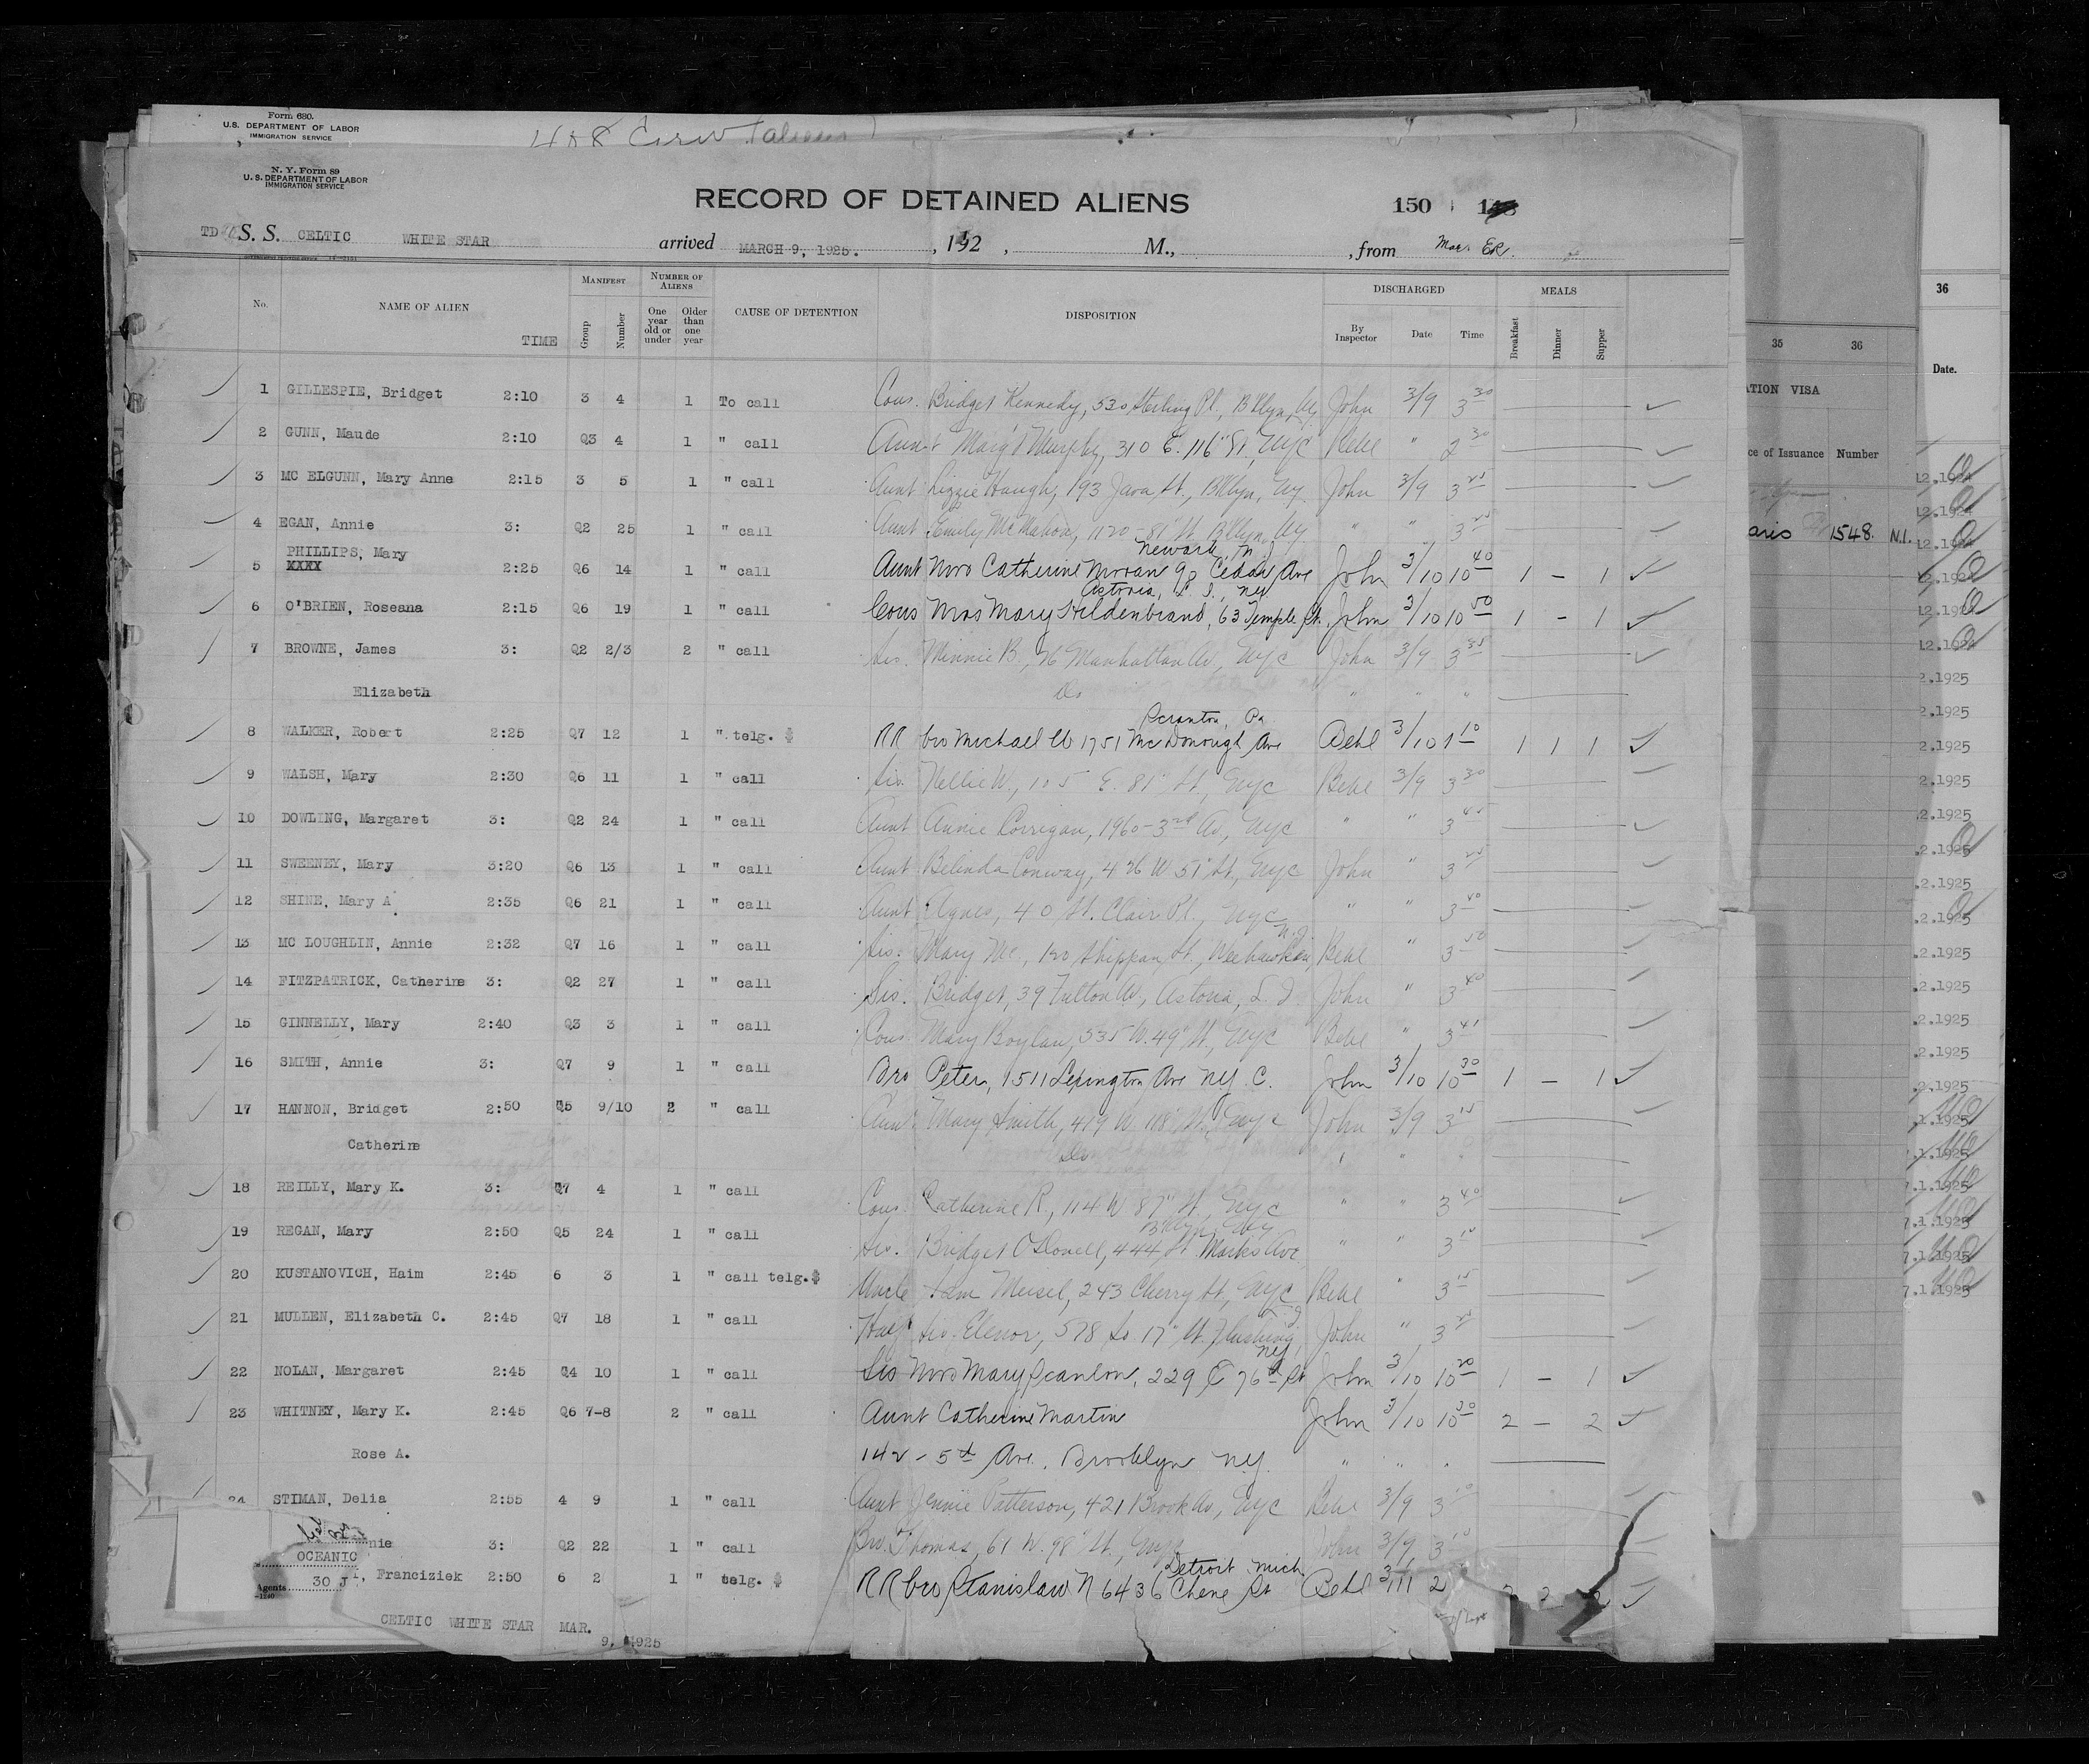 Form 680.
U.S. DEPARTMENT OF LABOR
IMMIGRATION SERVICE
N. Y. Form 89
U. S. DEPARTMENT OF LABOR
IMMIGRATION SERVICE
RECORD OF DETAINED ALIENS 150
TD S. S. CELTIC WHITE STAR arrived MARCH 9, 1925. , 192 , M., , from Mar. ER.
No. NAME OF ALIEN TIME MANIFEST Group Number NUMBER OF ALIENS One year old or under Older than one year CAUSE OF DETENTION DISPOSITION DISCHARGED By Inspector Date Time MEALS Breakfast Dinner Supper
1 GILLESPIE, Bridget 2:10 3 4 1 To call Cous. Bridget Kennedy, 530 Sterling Pl., B'klyn, Ny John 3/9 3 30
2 GUNN, Maude 2:10 Q3 4 1 " call Aunt Marg't Murphy, 310 E. 116" St., NYC Behl " 2 30
3 MC ELGUNN, Mary Anne 2:15 3 5 1 " call Aunt Lizzie Haugh, 193 Java St., B'klyn, Ny. John 3/9 3 25
4 EGAN, Annie 3: Q2 25 1 " call Aunt Emily McMahon, 1120-81" St. Bklyn, Ny. " " 3 25
Newark, N.J
5 PHILLIPS, Mary XXXX 2:25 Q6 14 1 " call Aunt Mrs Catherine Moran 98 Cedar Ave John 3/10 10 40 1 - 1
Astoria, L. I., ny
6 O'BRIEN, Roseana 2:15 Q6 19 1 " call Cous Mrs Mary Hildenbrand, 63 Temple St. John 3/10 10 50 1 - 1
7 BROWNE, James 3: Q2 2/3 2 " call Sis. Minnie B., 76 Manhattan Av, Nyc John 3/9 3 35
Elizabeth Do " " "
Scranton, Pa
8 WALKER, Robert 2:25 Q7 12 1 " telg. $ RR bro Michael W 1751 McDonough Ave Behl 3/10 1 10 1 1 1
9 WALSH, Mary 2:30 Q6 11 1 " call Sis. Nellie W., 105 E. 81" St., Nyc Behl 3/9 3 30
10 DOWLING, Margaret 3: Q2 24 1 " call Aunt Annie Corrigan, 1960-3rd Av., Nyc " " 3 45
11 SWEENEY, Mary 3:20 Q6 13 1 " call Aunt Belinda Conway, 426 W 51" St., Nyc John " 3 25
12 SHINE, Mary A 2:35 Q6 21 1 " call Aunt Agnes, 40 St. Clair Pl., Nyc " " 3 40
N.J.
13 MC LOUGHLIN, Annie 2:32 Q7 16 1 " call Sis. Mary Mc., 120 Shippen St., Weehawken, Behl " 3 50
14 FITZPATRICK, Catherine 3: Q2 27 1 " call Sis. Bridget, 39 Fulton Av, Astoria, L. I. John " 3 40
15 GINNELLY, Mary 2:40 Q3 3 1 " call Cous. Mary Boylan, 535 W. 49" St., Nyc Behl " 3 45
16 SMITH, Annie 3: Q7 9 1 " call Bro Peter, 1511 Lexington Ave NY. C. John 3/10 10 30 1 - 1
17 HANNON, Bridget 2:50 Q5 9/10 2 " call Aunt Mary Smith, 419 W 118" St., Nyc John 3/9 3 15
Catherine Do " " "
18 REILLY, Mary K. 3: Q7 4 1 " call Cous. Catherine R., 114 W 87" St., Nyc " " 3 40
B'klyn, Ny
19 REGAN, Mary 2:50 Q5 24 1 " call Sis. Bridget O'Donell, 444 St. Marks Ave " " 3 10
20 KUSTANOVICH, Haim 2:45 6 3 1 " call telg. $ Uncle Sam Meisel, 243 Cherry St., Nyc Behl " 3 15
L.I.
21 MULLEN, Elizabeth C. 2:45 Q7 18 1 " call Half Sis. Elenor, 578 So. 17" St. Flushing, John " 3 25
NY
22 NOLAN, Margaret 2:45 Q4 10 1 " call Sis Mrs Mary Scanlon, 229 E 76th St John 3/10 10 20 1 - 1
23 WHITNEY, Mary K. 2:45 Q6 7-8 2 " call Aunt Catherine Martin John 3/10 10 30 2 - 2
Rose A. 142 - 5th Ave. Brooklyn N.Y. " " "
24 STIMAN, Delia 2:55 4 9 1 " call Aunt Jennie Patterson, 421 Brook Av, Nyc Behl 3/9 3 10
nie 3: Q2 22 1 " call Bro. Thomas, 61 W. 98" St., Nyc John 3/9 3 10
OCEANIC
Detroit Mich
30 J , Franciziek 2:50 6 2 1 " telg. $ RR bro Stanislaw N 6436 Chene St Behl 3/11 2 2 2 2
Agents
CELTIC WHITE STAR MAR. 9, 1925
35 36
ATION VISA
ce of Issuance Number
aris 1548. N.I.
36
Date.